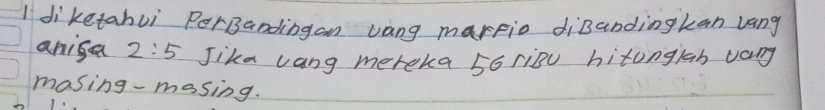 1 diketahui Perbandingan uang marfio dibandingkan uang
anisa 2:5 Jika uang mereka 56 ribu hitunglah uang
masing-masing.